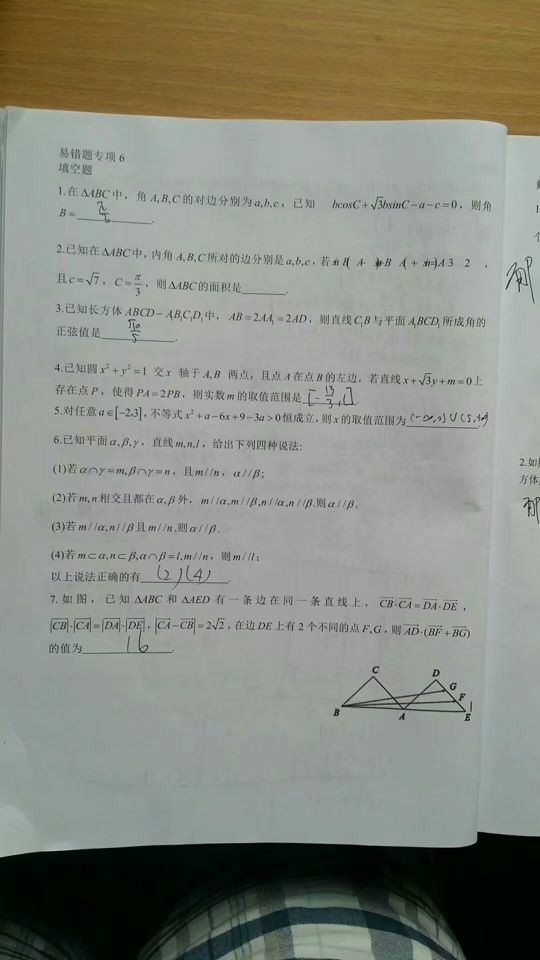 易错题专项 6
填空题
1.在 ΔABC 中，角 A,B,C 的对边分别为 a,b,c，已知 bcosC+√3bsinC−a−c=0，则角
B=____.
2.已知在 ΔABC 中,内角 A,B,C 所对的边分别是 a,b,c，若
且 c=√7，C=π/3，则 ΔABC 的面积是____.
3.已知长方体 ABCD−A₁B₁C₁D₁ 中，AB=2AA₁=2AD，则直线 C₁B 与平面 A₁BCD₁ 所成角的
正弦值是 √10/5.
4.已知圆 x²+y²=1 交 x 轴于 A,B 两点，且点 A 在点 B 的左边，若直线 x+√3y+m=0 上
存在点 P，使得 PA=2PB，则实数 m 的取值范围是 [-13/3,1].
5.对任意 a∈[−2,3]，不等式 x²+a−6x+9−3a>0 恒成立，则 x 的取值范围为
6.已知平面 α,β,γ，直线 m,n,l，给出下列四种说法:
(1)若 α∩γ=m,β∩γ=n，且 m//n，α//β；
(2)若 m,n 相交且都在 α,β 外，m//α,m//β,n//α,n//β.则 α//β.
(3)若 m//α,n//β 且 m//n.则 α//β.
(4)若 m⊂α,n⊂β,α∩β=l,m//n，则 m//l；
以上说法正确的有 (2)(4).
7.如图，已知 ΔABC 和 ΔAED 有一条边在同一条直线上，CB·CA=DA·DE，
|CB|·|CA|=|DA|·|DE|，|CA−CB|=2√2，在边 DE 上有 2 个不同的点 F,G，则 AD·(BF+BG)
的值为 16.
C
D
G
F
B
A
E
2.如
方体